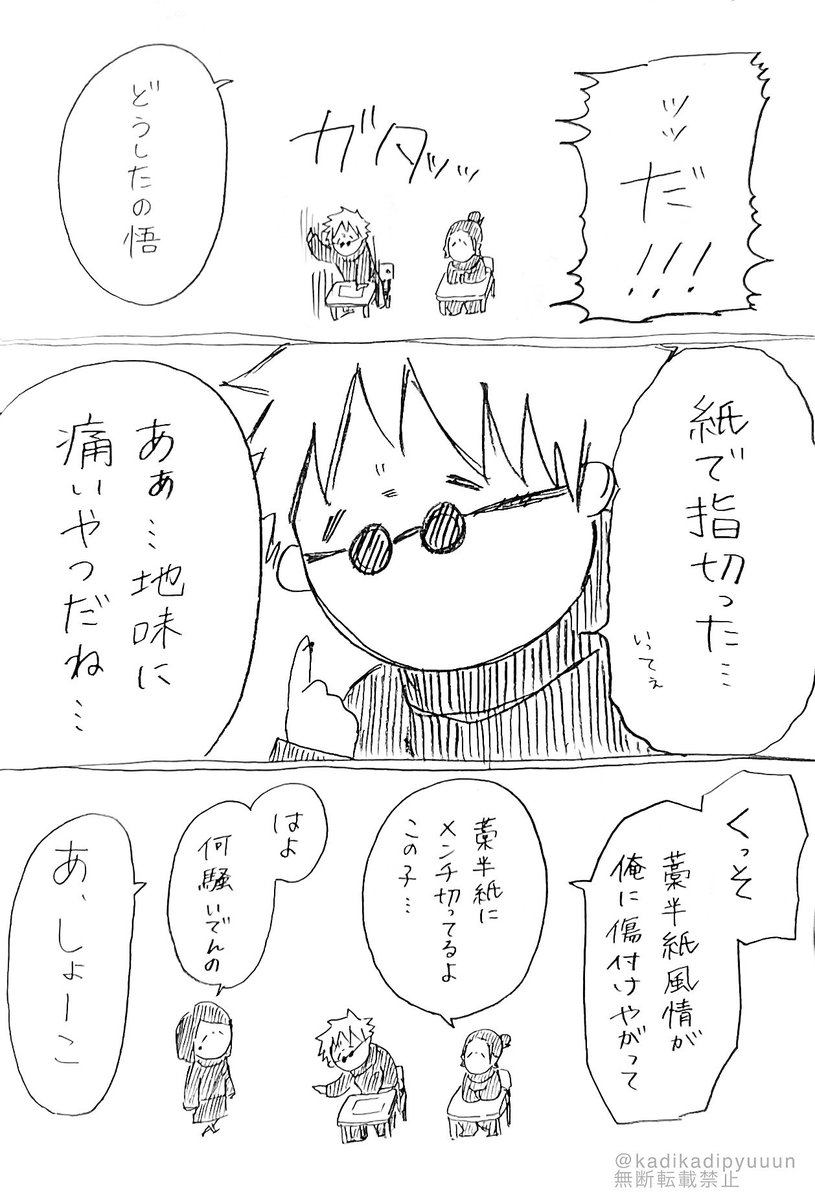 ッッだ!!!
ガタッッ
どうしたの悟
紙で指切った…
いってぇ
あぁ…地味に
痛いやつだね…
くっそ
藁半紙風情が
俺に傷付けやがって
藁半紙に
メンチ切ってるよ
この子…
はよ
何騒いでんの
あ、しょーこ
@kadikadipyuuun
無断転載禁止